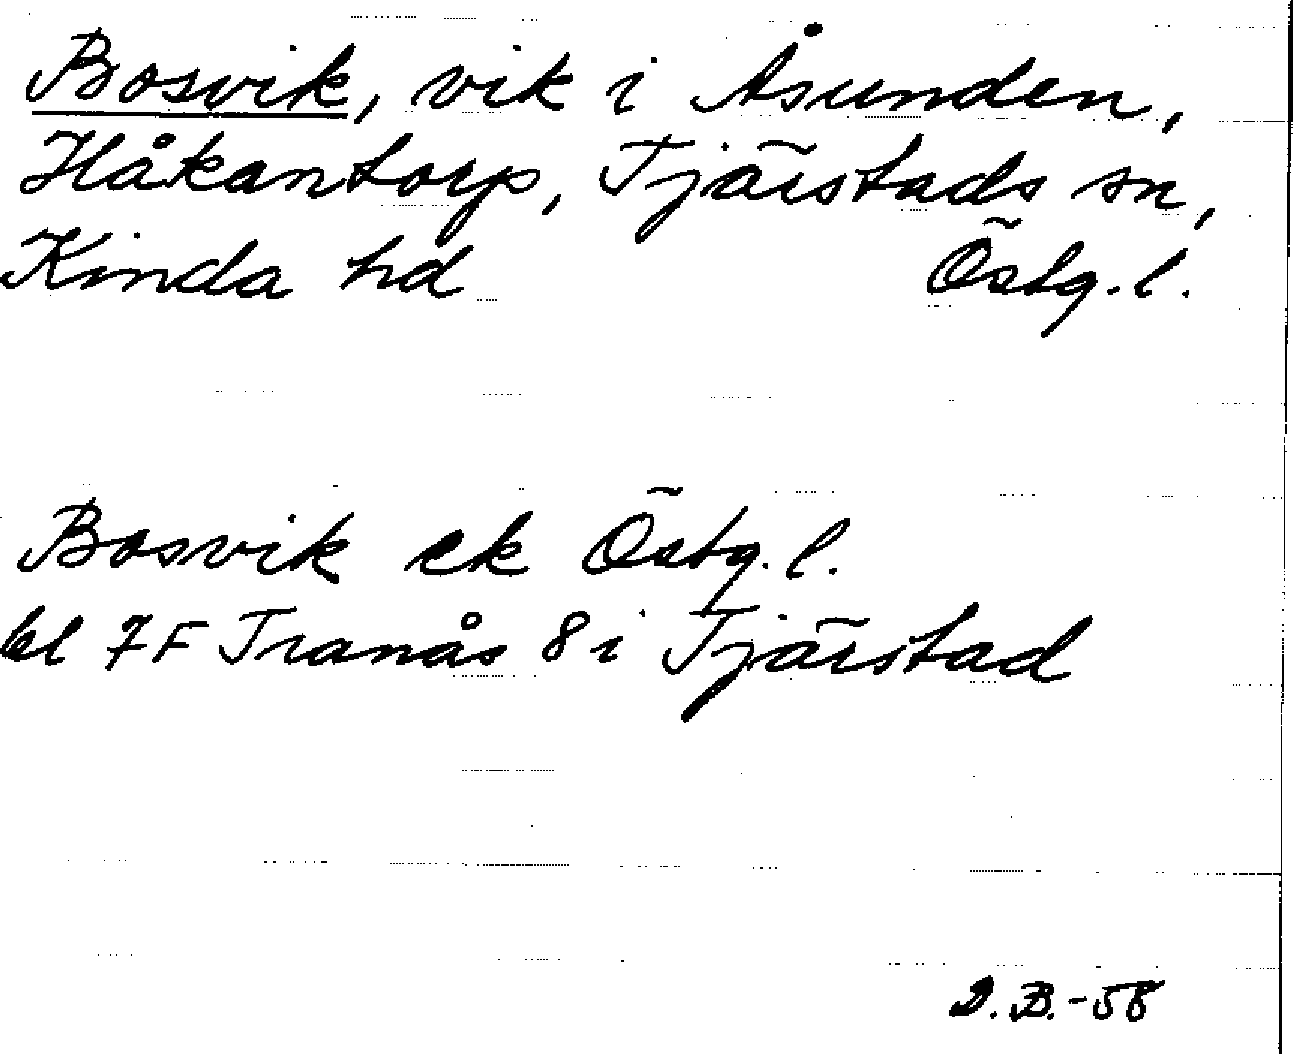 Bosvik, vik i Åsunden,
Håkantorp, Tjärstads sn,
Kinda hd Östg. l.
Bosvik ek Östg. l.
bl 7F Tranås 8 i Tjärstad
D. B. -58